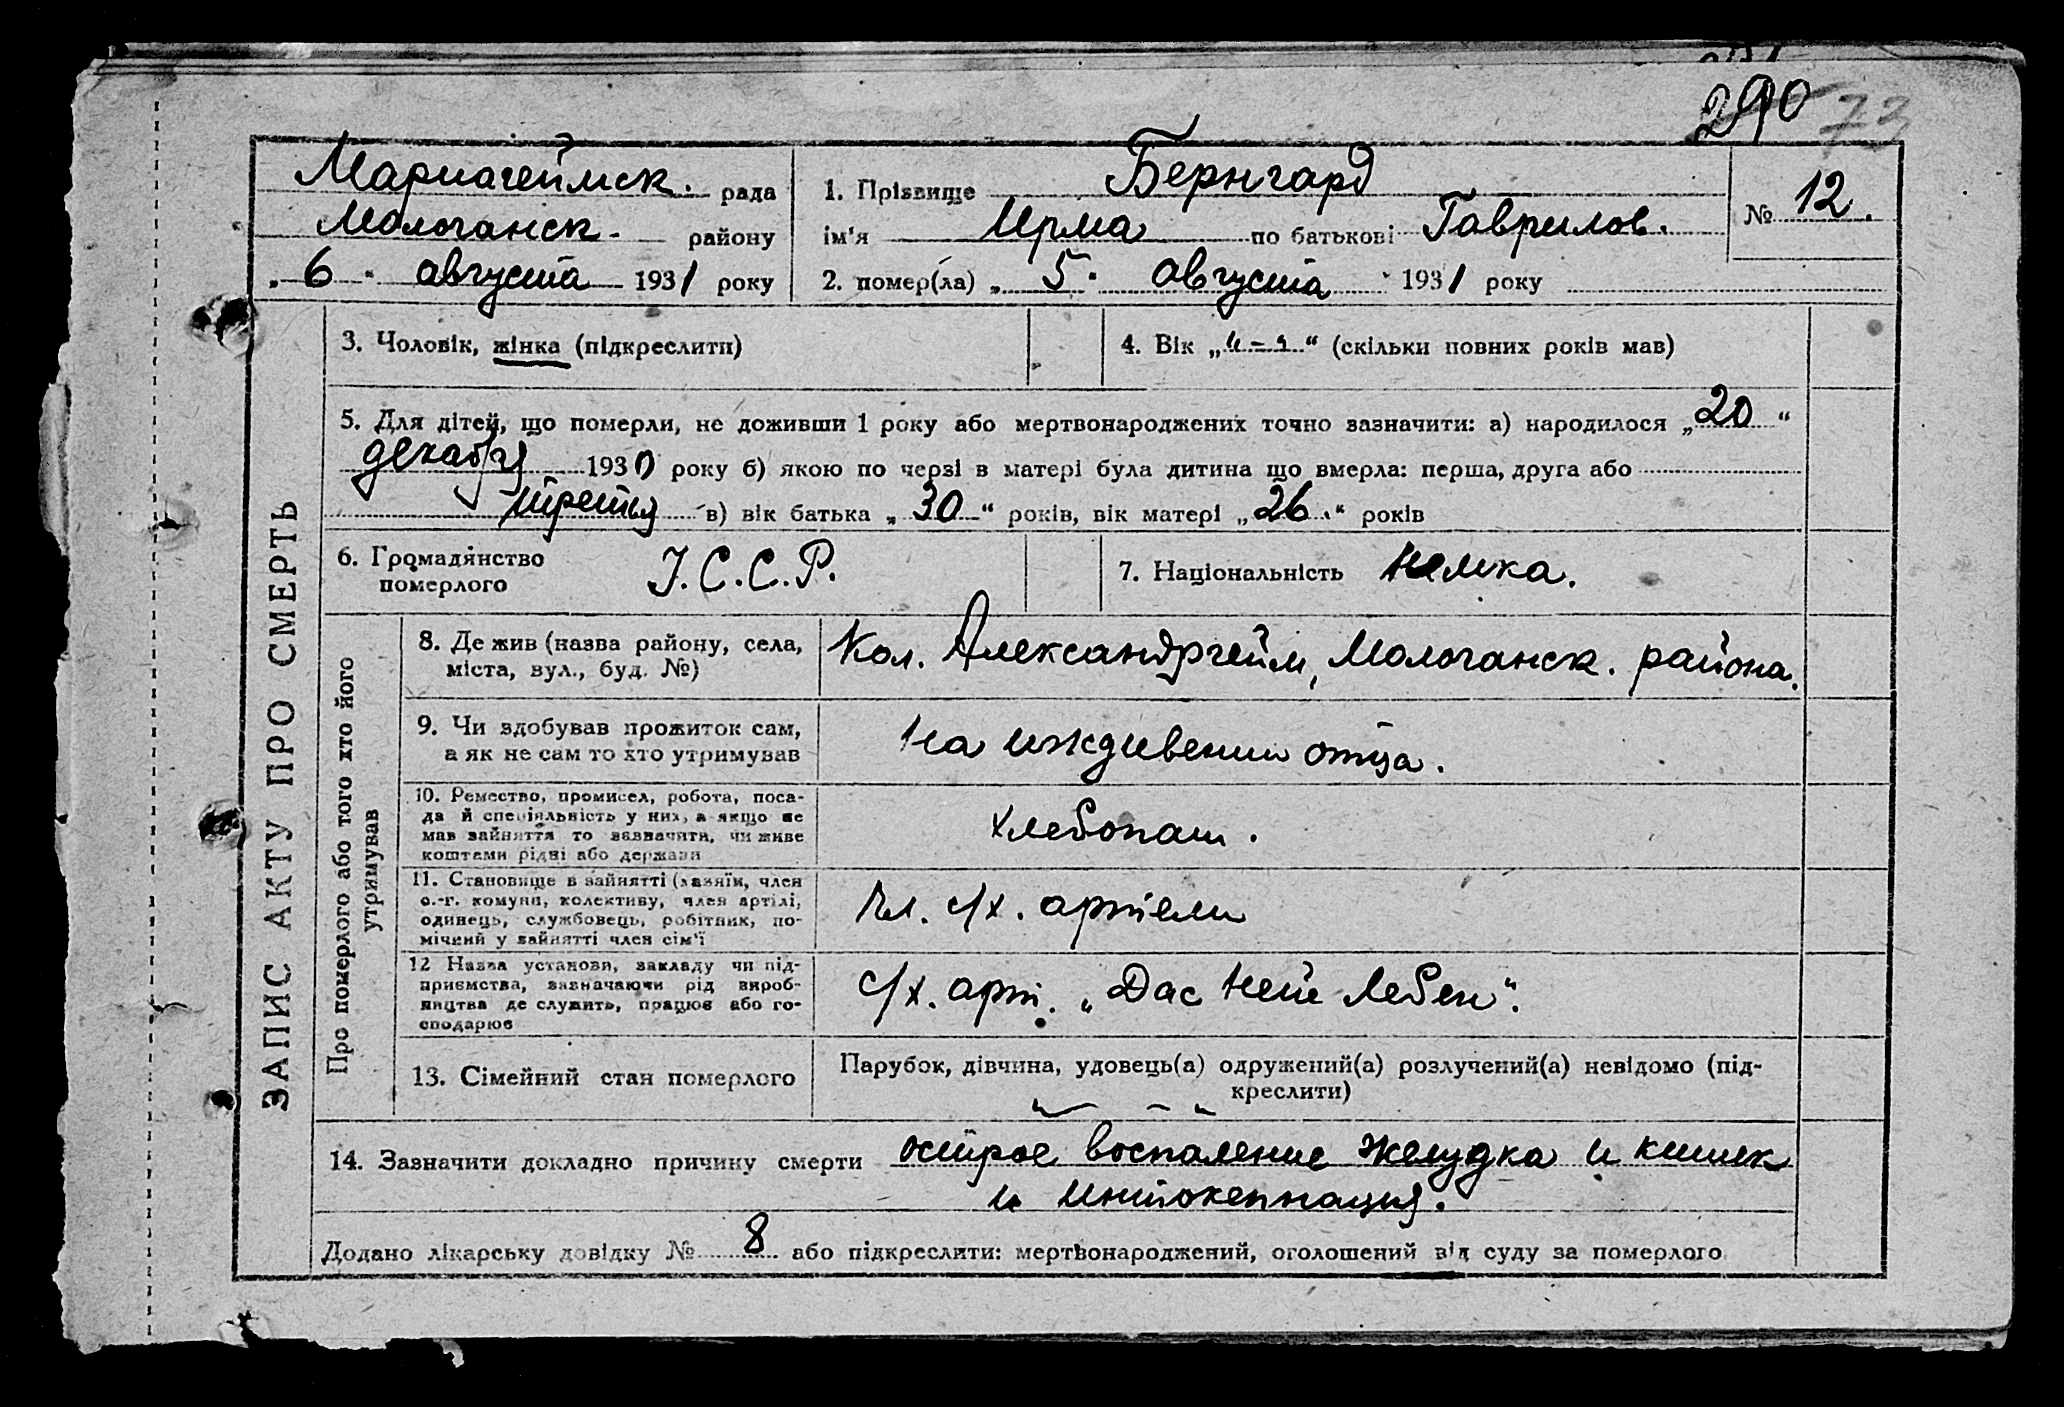 290 72
Мариагеймск. рада
Мологанск. району
„6" августа 1931 року
1. Прізвище Бернгард
ім'я Ирма по батькові Гаврилов.
2. помер(ла) „5" августа 1931 року
№ 12.
ЗАПИС АКТУ ПРО СМЕРТЬ
3. Чоловік, жінка (підкреслити)
4. Вік „ " (скільки повних років мав)
5. Для дітей, що померли, не доживши 1 року або мертвонароджених точно зазначити: а) народилося „20"
декабря 1930 року б) якою по черзі в матері була дитина що вмерла: перша, друга або
третья в) вік батька „30" років, вік матері „26" років
6. Громадянство
померлого
У.С.С.Р.
7. Національність немка.
Про померлого або того хто його
утримував
8. Де жив (назва району, села,
міста, вул., буд. №)
Кол. Александргейм, Мологанск. района.
9. Чи здобував прожиток сам,
а як не сам то хто утримував
На иждивении отца.
10. Ремество, промисел, робота, поса-
да й спеціяльність у них, а якщо не
мав зайняття то зазначити, чи живе
коштами рідні або держави
хлебопаш.
11. Становище в зайнятті (хазяїн, член
с.-г. комуни, колективу, член артілі,
одинець, службовець, робітник, по-
мічний у зайнятті член сім'ї
Чл. с/х. артели
12 Назва установи, закладу чи під-
приємства, зазначаючи рід вироб-
ництва де служить, працює або го-
сподарює
с/х. арт. „Дас Ней Лебен".
13. Сімейний стан померлого
Парубок, дівчина, удовець(а) одружений(а) розлучений(а) невідомо (під-
креслити)
14. Зазначити докладно причину смерти острое воспаление желудка и кишек
и интокепкация.
Додано лікарську довідку № 8 або підкреслити: мертвонароджений, оголошений від суду за померлого